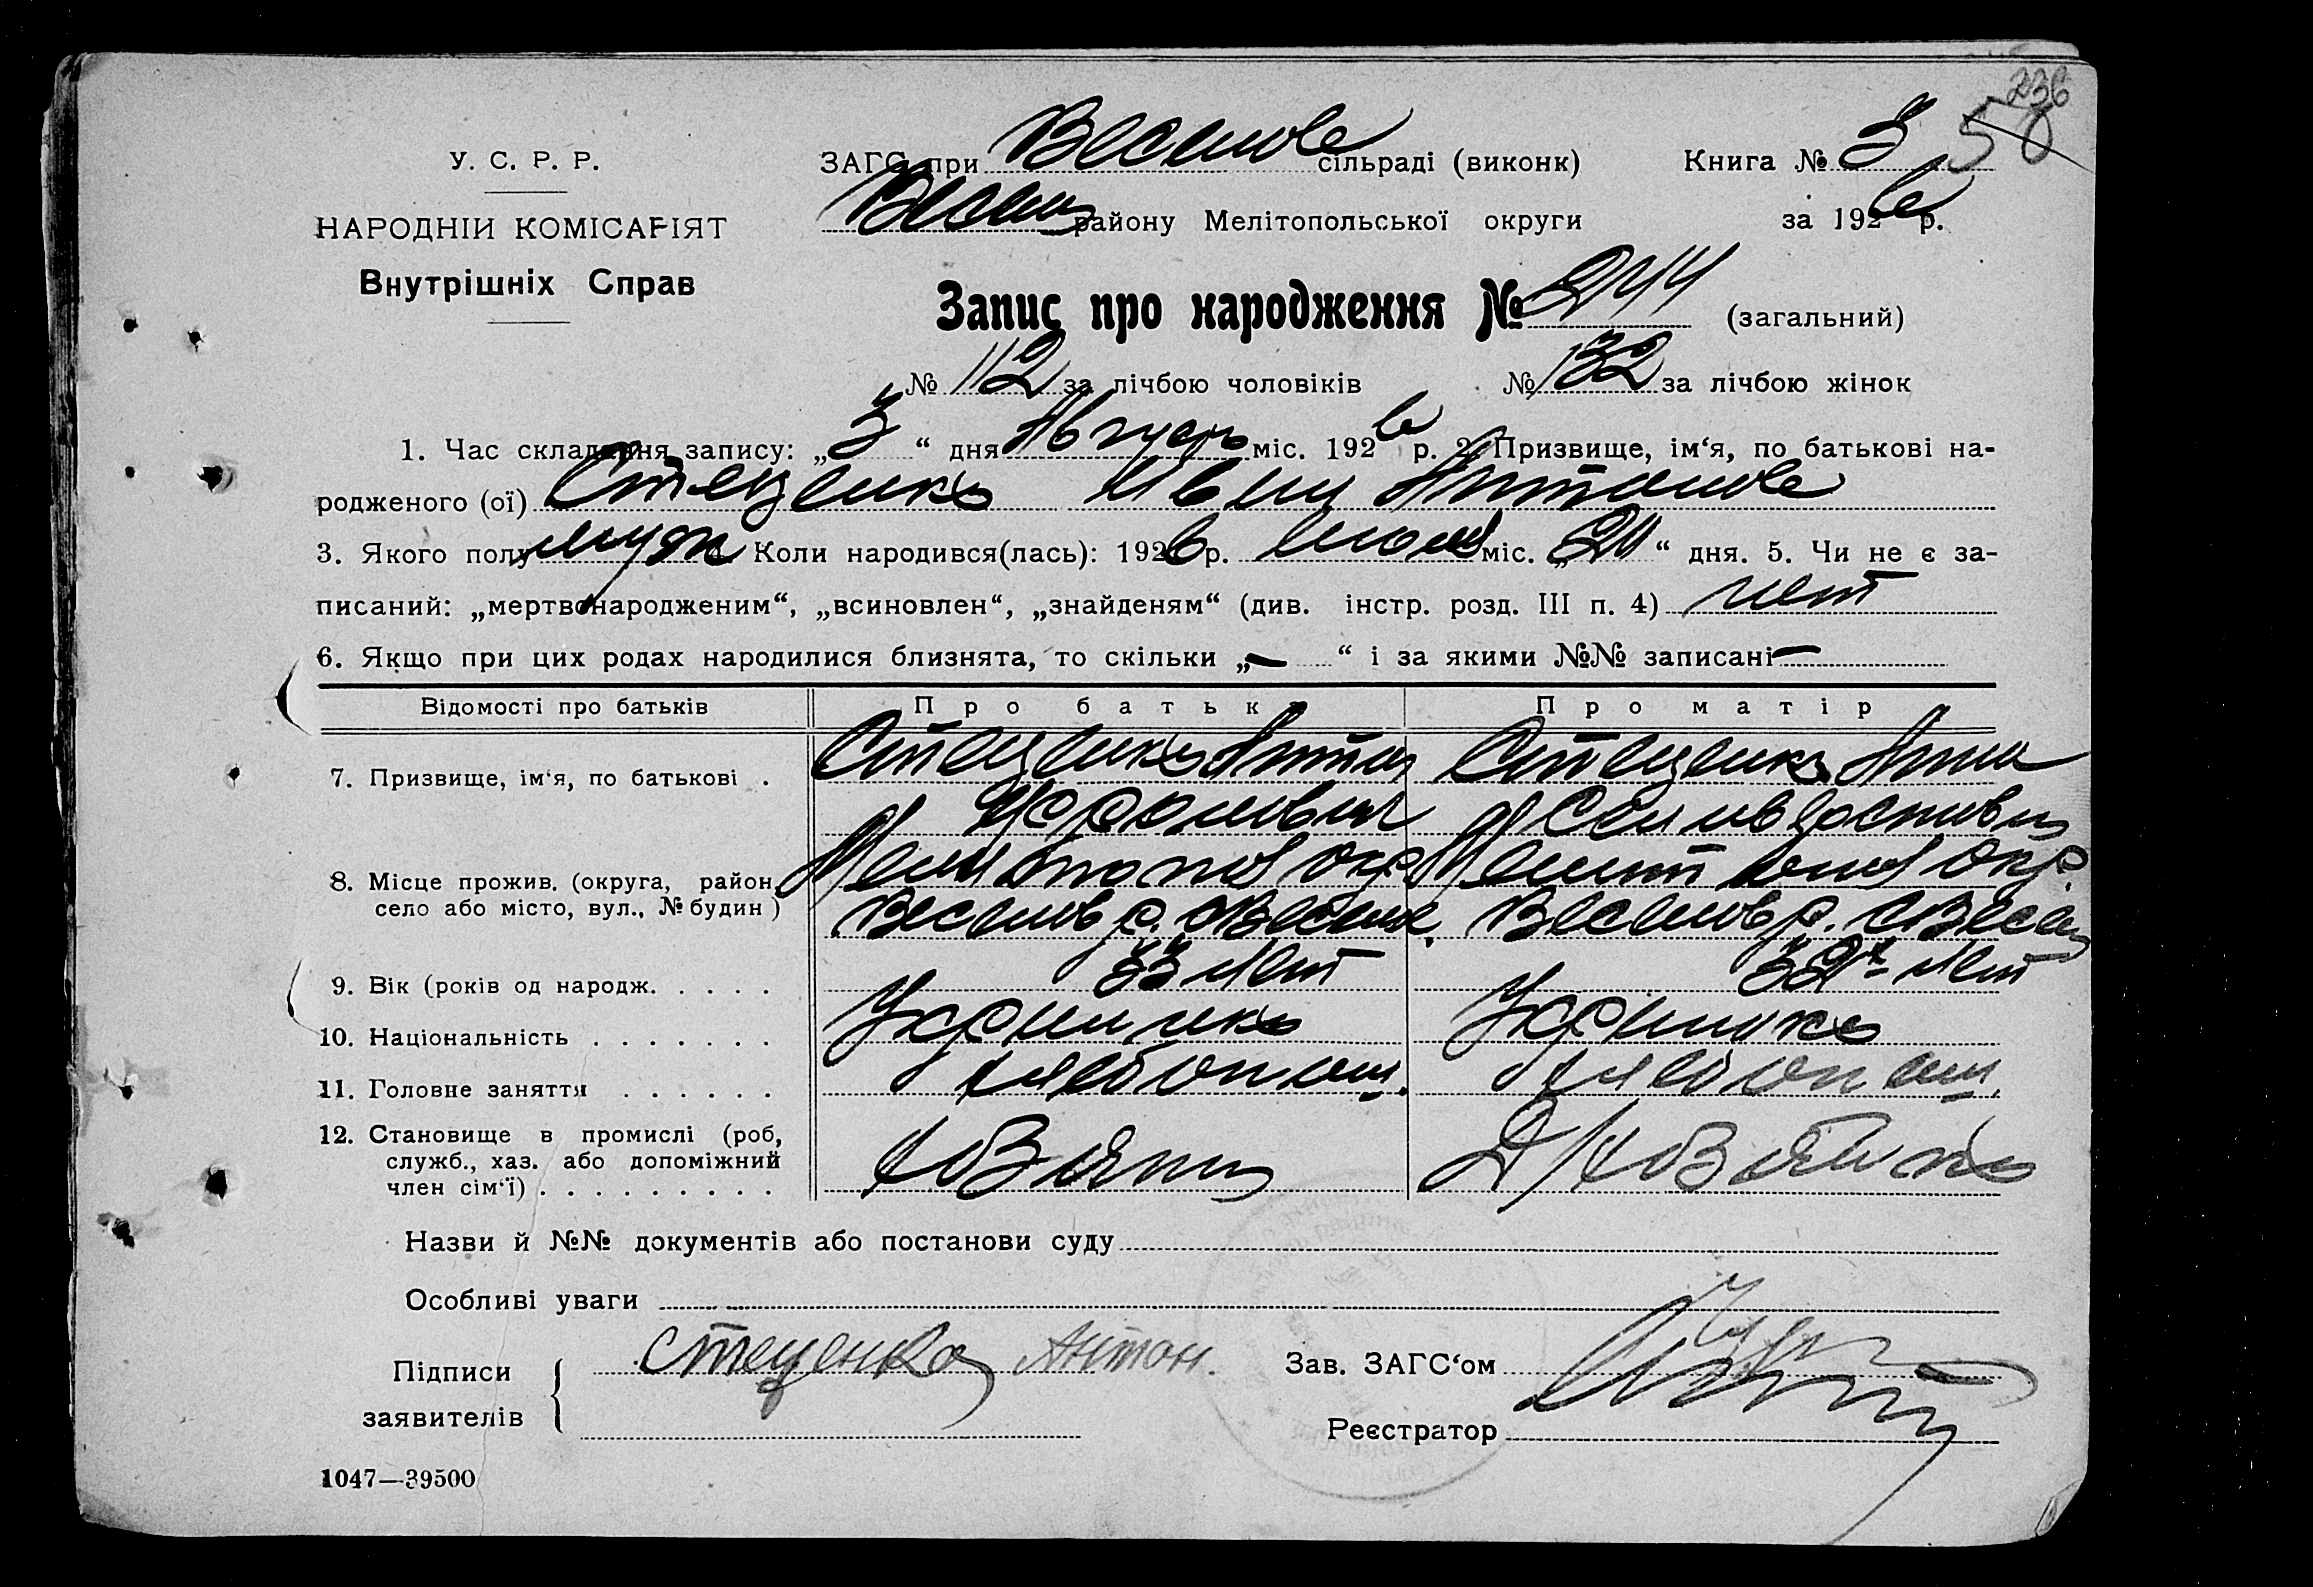 236
58
У. С. Р. Р.
НАРОДНІЙ КОМІСАРІЯТ
Внутрішніх Справ
ЗАГС при Веселове сільраді (виконк)
Весел району Мелітопольської округи
Книга № 3
за 1926 р.
Запис про народження № 244 (загальний)
№ 112 за лічбою чоловіків № 132 за лічбою жінок
1. Час складання запису: „3“ дня Август міс. 1926 р. 2. Призвище, ім‘я, по батькові на-
родженого (ої) Стеценко Иван Антонов
3. Якого полу муж 4. Коли народився(лась): 1926 р. міс. „20“ дня. 5. Чи не є за-
писаний: „мертвонародженим“, „всиновлен“, „знайденям“ (див. інстр. розд. III п. 4) нет
6. Якщо при цих родах народилися близнята, то скільки „—“ і за якими №№ записані —
Відомості про батьків Про батька Про матір
7. Призвище, ім‘я, по батькові . Стеценко Антон Стеценко Анна
Селивестровна
8. Місце прожив. (округа, район, село або місто, вул., № будин) Мелитопол окр. Мелитопол окр.
Веселов р. Веселов р.
9. Вік (років од народж. . . . . 33 лет 32 лет
10. Національність . . . . . . . Украинка Украинка
11. Головне заняття . . . . . . хлебопаш. хлебопаш.
12. Становище в промислі (роб,
служб., хаз. або допоміжний
член сім‘ї) . . . . . . . . . Хозяин Д/Хозяина
Назви й №№ документів або постанови суду
Особливі уваги
Підписи
заявителів
Стеценко Антон.
Зав. ЗАГС‘ом
Реєстратор
1047—39500